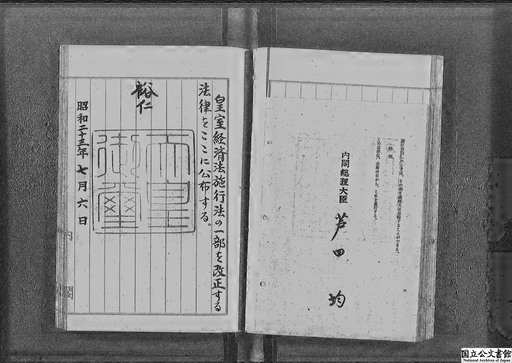 内閣総理大臣 芦田 均
皇室経済法施行法の一部を改正する
法律をここに公布する。
裕仁
天皇御璽
昭和二十三年七月六日
国立公文書館
National Archives of Japan